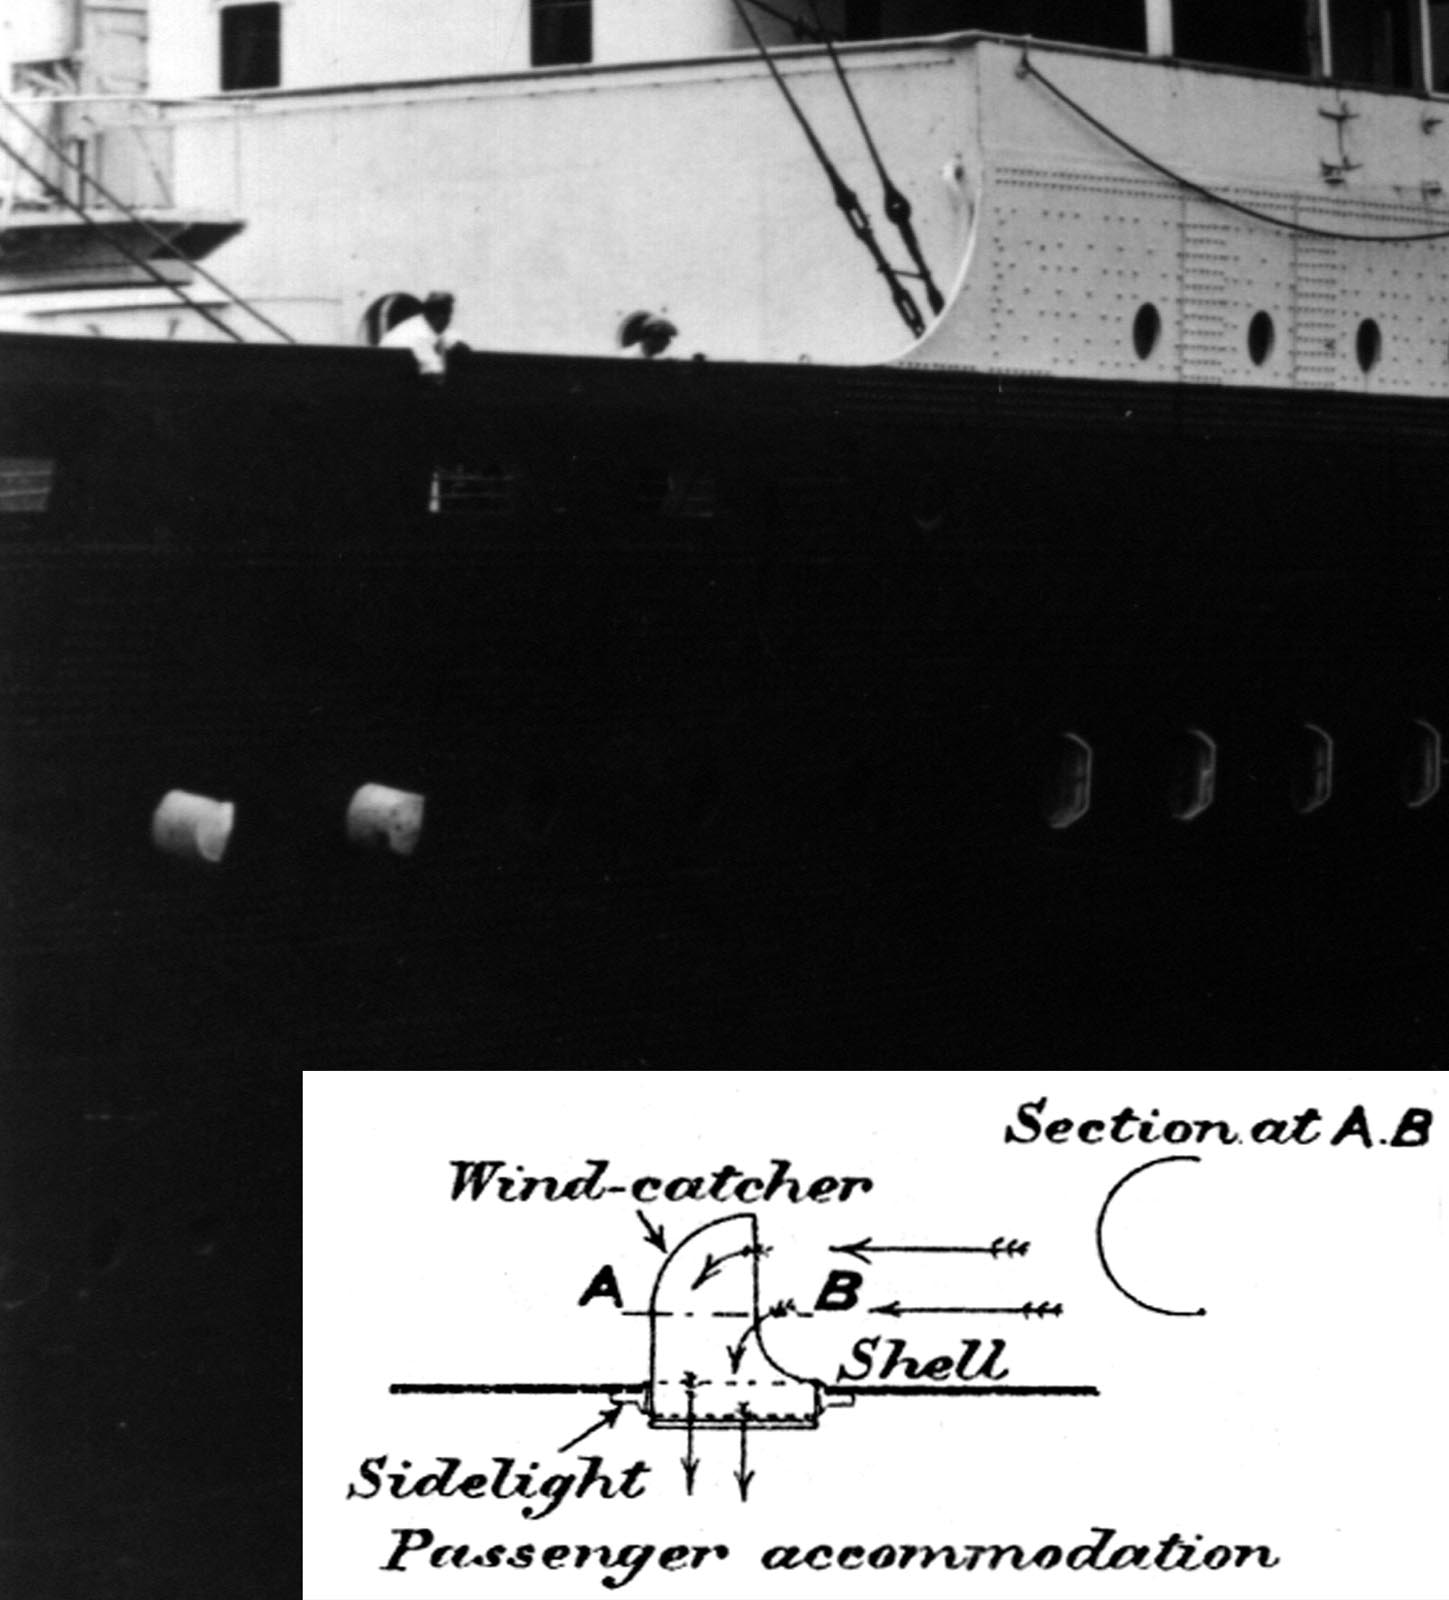 Section at A.B
Wind-catcher
A
B
Shell
Sidelight
Passenger accommodation